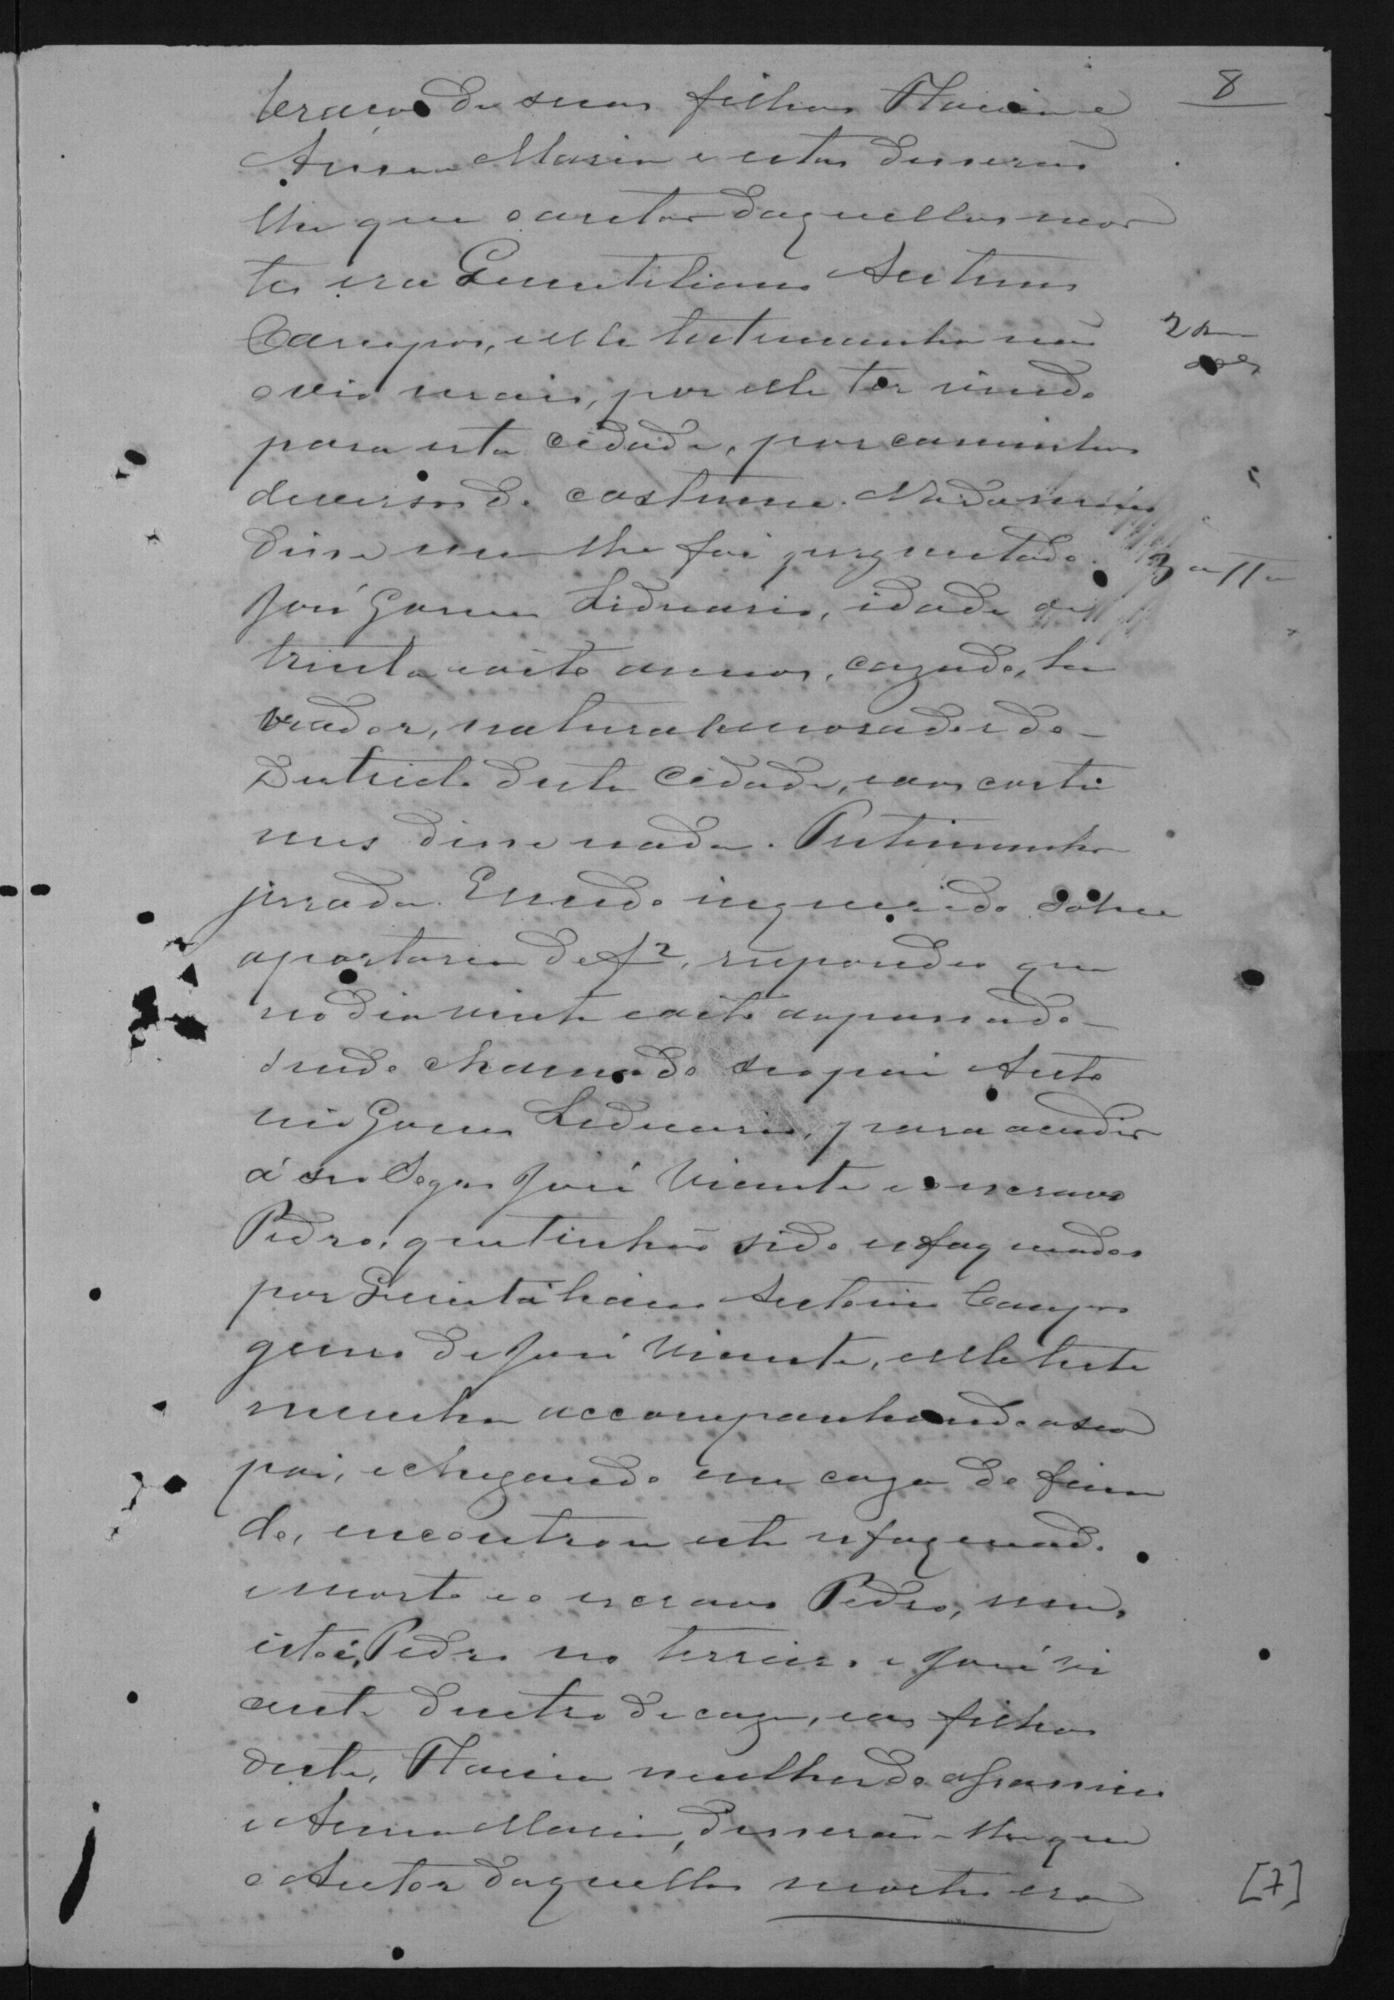 8
braços de suas filhas Flavia e
Anna Maria e estas disserão
lhe que o autor daquellas mor
tes era Quintiliano Antonio
Campos, e elle testemunha não
o vio mais, por elle ter vindo
para esta cidade, por caminhos
diversos do costume. Nada mais
disse nem lhe foi perguntado.
2
3ª Tª
José Gomes Liduario, idade de
trinta e oito annos, cazado, la
vrador, natural e morador do
Districto desta Cidade, e aos costu
mes disse nada. Testimunha
jurada. E sendo inquerido sobre
a portaria de f 2, respondeu que
no dia vinte e oito do passado
sendo chamado seo pai Anto
nio Gomes Liduario, para acudir
á seo Sogro José Vicente e o escravo
Pedro, que tinhão sido esfaqueados
por Quintiliano Antonio Campos
genro de José Vicente, e elle teste
munha accompanhando a seo
pai, e chegando em caza do fina
do, encontrou este esfaqueado
e morto e o escravo Pedro,
isto é, Pedro no terreiro e José Vi
cente dentro de caza, e as filhas
deste, Flavia mulher do assassino
e Anna Maria, disserão-lhe que
o Autor daquellas mortes era
[7]